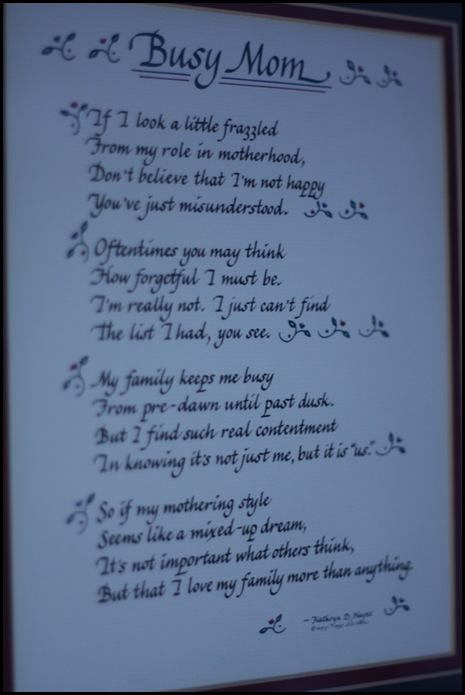 Busy Mom
If I look a little frazzled
From my role in motherhood,
Don't believe that I'm not happy
You've just misunderstood.
Oftentimes you may think
How forgetful I must be.
I'm really not. I just can't find
The list I had, you see.
My family keeps me busy
From pre-dawn until past dusk.
But I find such real contentment
In knowing it's not just me, but it is "us."
So if my mothering style
Seems like a mixed-up dream,
It's not important what others think,
But that I love my family more than anything.
– Kathryn